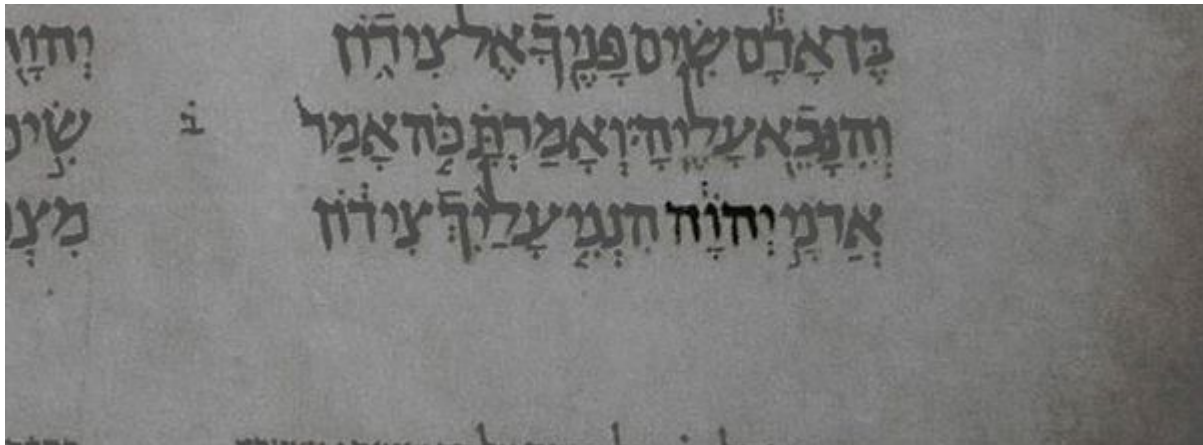 בֶּן אָדָ֕ם שִׂ֥ים פָּנֶ֖יךָ אֶל צִיד֑וֹן
וְהִנָּבֵ֖א עָלֶֽיהָ׃ וְאָֽמַרְתָּ֗ כֹּ֤ה אָמַר֙ בׄ
אֲדֹנָ֣י יְהוָֹ֔ה הִנְנִ֤י עָלַ֙יִךְ֙ צִיד֔וֹן